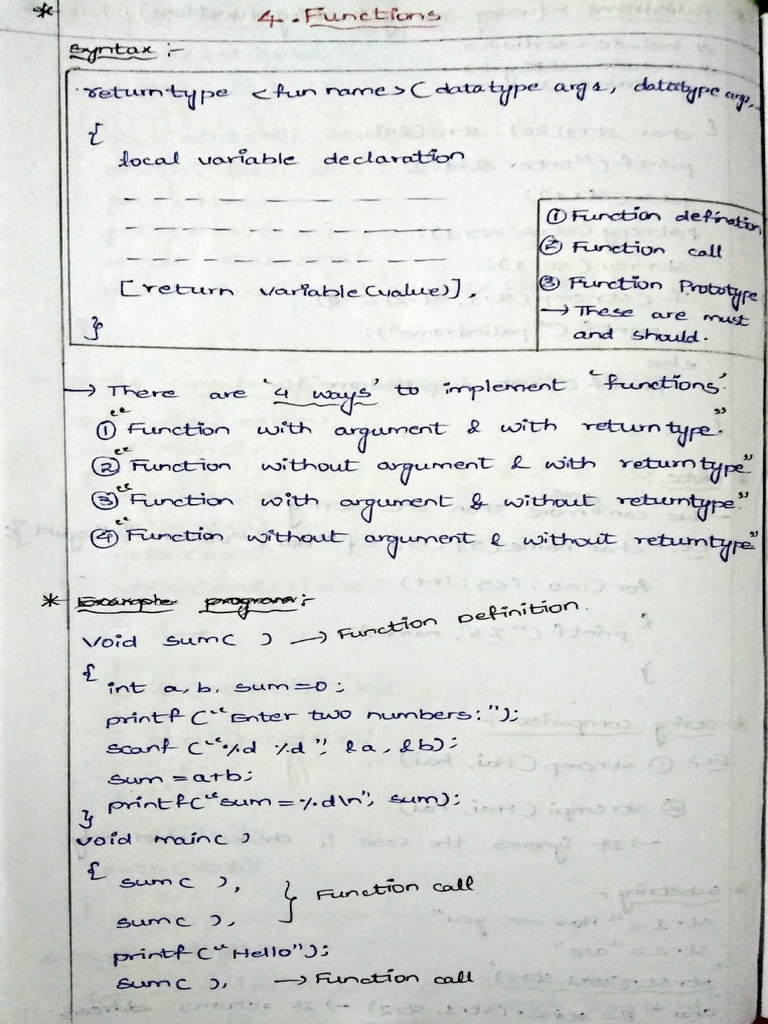 * 4. Functions
Syntax :-
returntype <fun name> (datatype arg1, datatype arg2,
{
local variable declaration
[return variable(value)],
}
① Function defination
② Function call
③ Function Prototype
→ These are must
and should.
→ There are '4 ways' to implement 'functions'.
① "Function with argument & with returntype".
② "Function without argument & with returntype"
③ "Function with argument & without returntype"
④ "Function without argument & without returntype"
* Example program:-
void sum( ) → Function Definition.
{
int a, b, sum=0;
printf ("Enter two numbers:");
scanf ("%d %d", &a, &b);
sum = a+b;
printf("sum = %d\n", sum);
}
void main( )
{
sum( ),
sum( ),
} Function call
printf ("Hello");
sum( ), → Function call